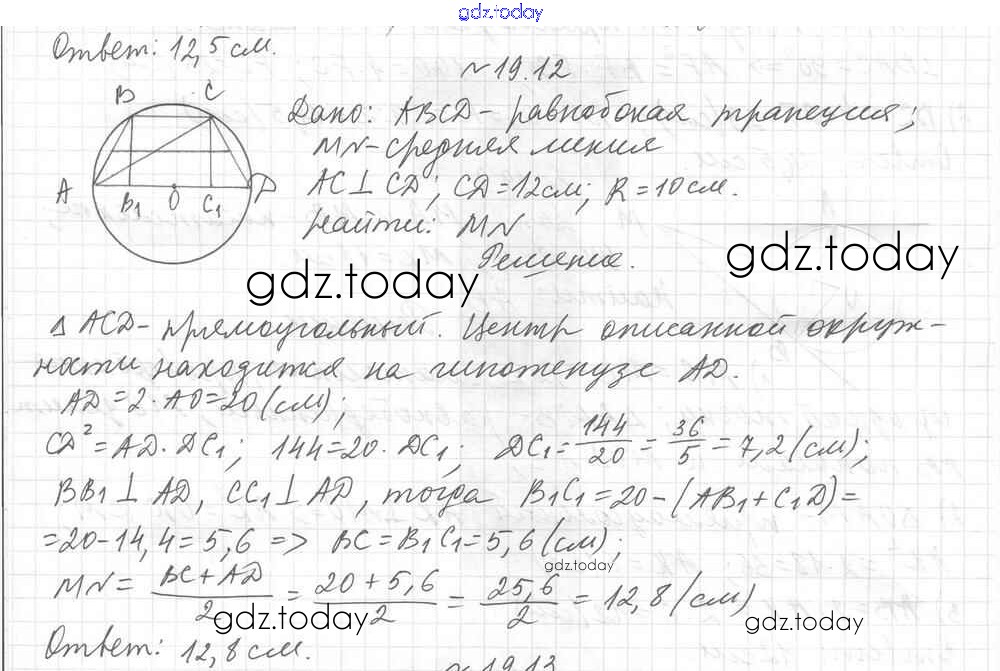 gdz.today
Ответ: 12,5 см.
№19.12
B C
A B₁ O C₁ D
Дано: ABCD - равнобокая трапеция;
MN - средняя линия
AC ⊥ CD; CD = 12 см; R = 10 см.
Найти: MN
Решение.
gdz.today
gdz.today
Δ ACD - прямоугольный. Центр описанной окруж-
ности находится на гипотенузе AD.
AD = 2 · AO = 20 (см);
CD² = AD · DC₁; 144 = 20 · DC₁; DC₁ = 144/20 = 36/5 = 7,2 (см);
BB₁ ⊥ AD, CC₁ ⊥ AD, тогда B₁C₁ = 20 - (AB₁ + C₁D) =
= 20 - 14,4 = 5,6 => BC = B₁C₁ = 5,6 (см);
gdz.today
MN = (BC + AD)/2 = (20 + 5,6)/2 = 25,6/2 = 12,8 (см)
gdz.today
gdz.today
Ответ: 12,8 см.
№19.13